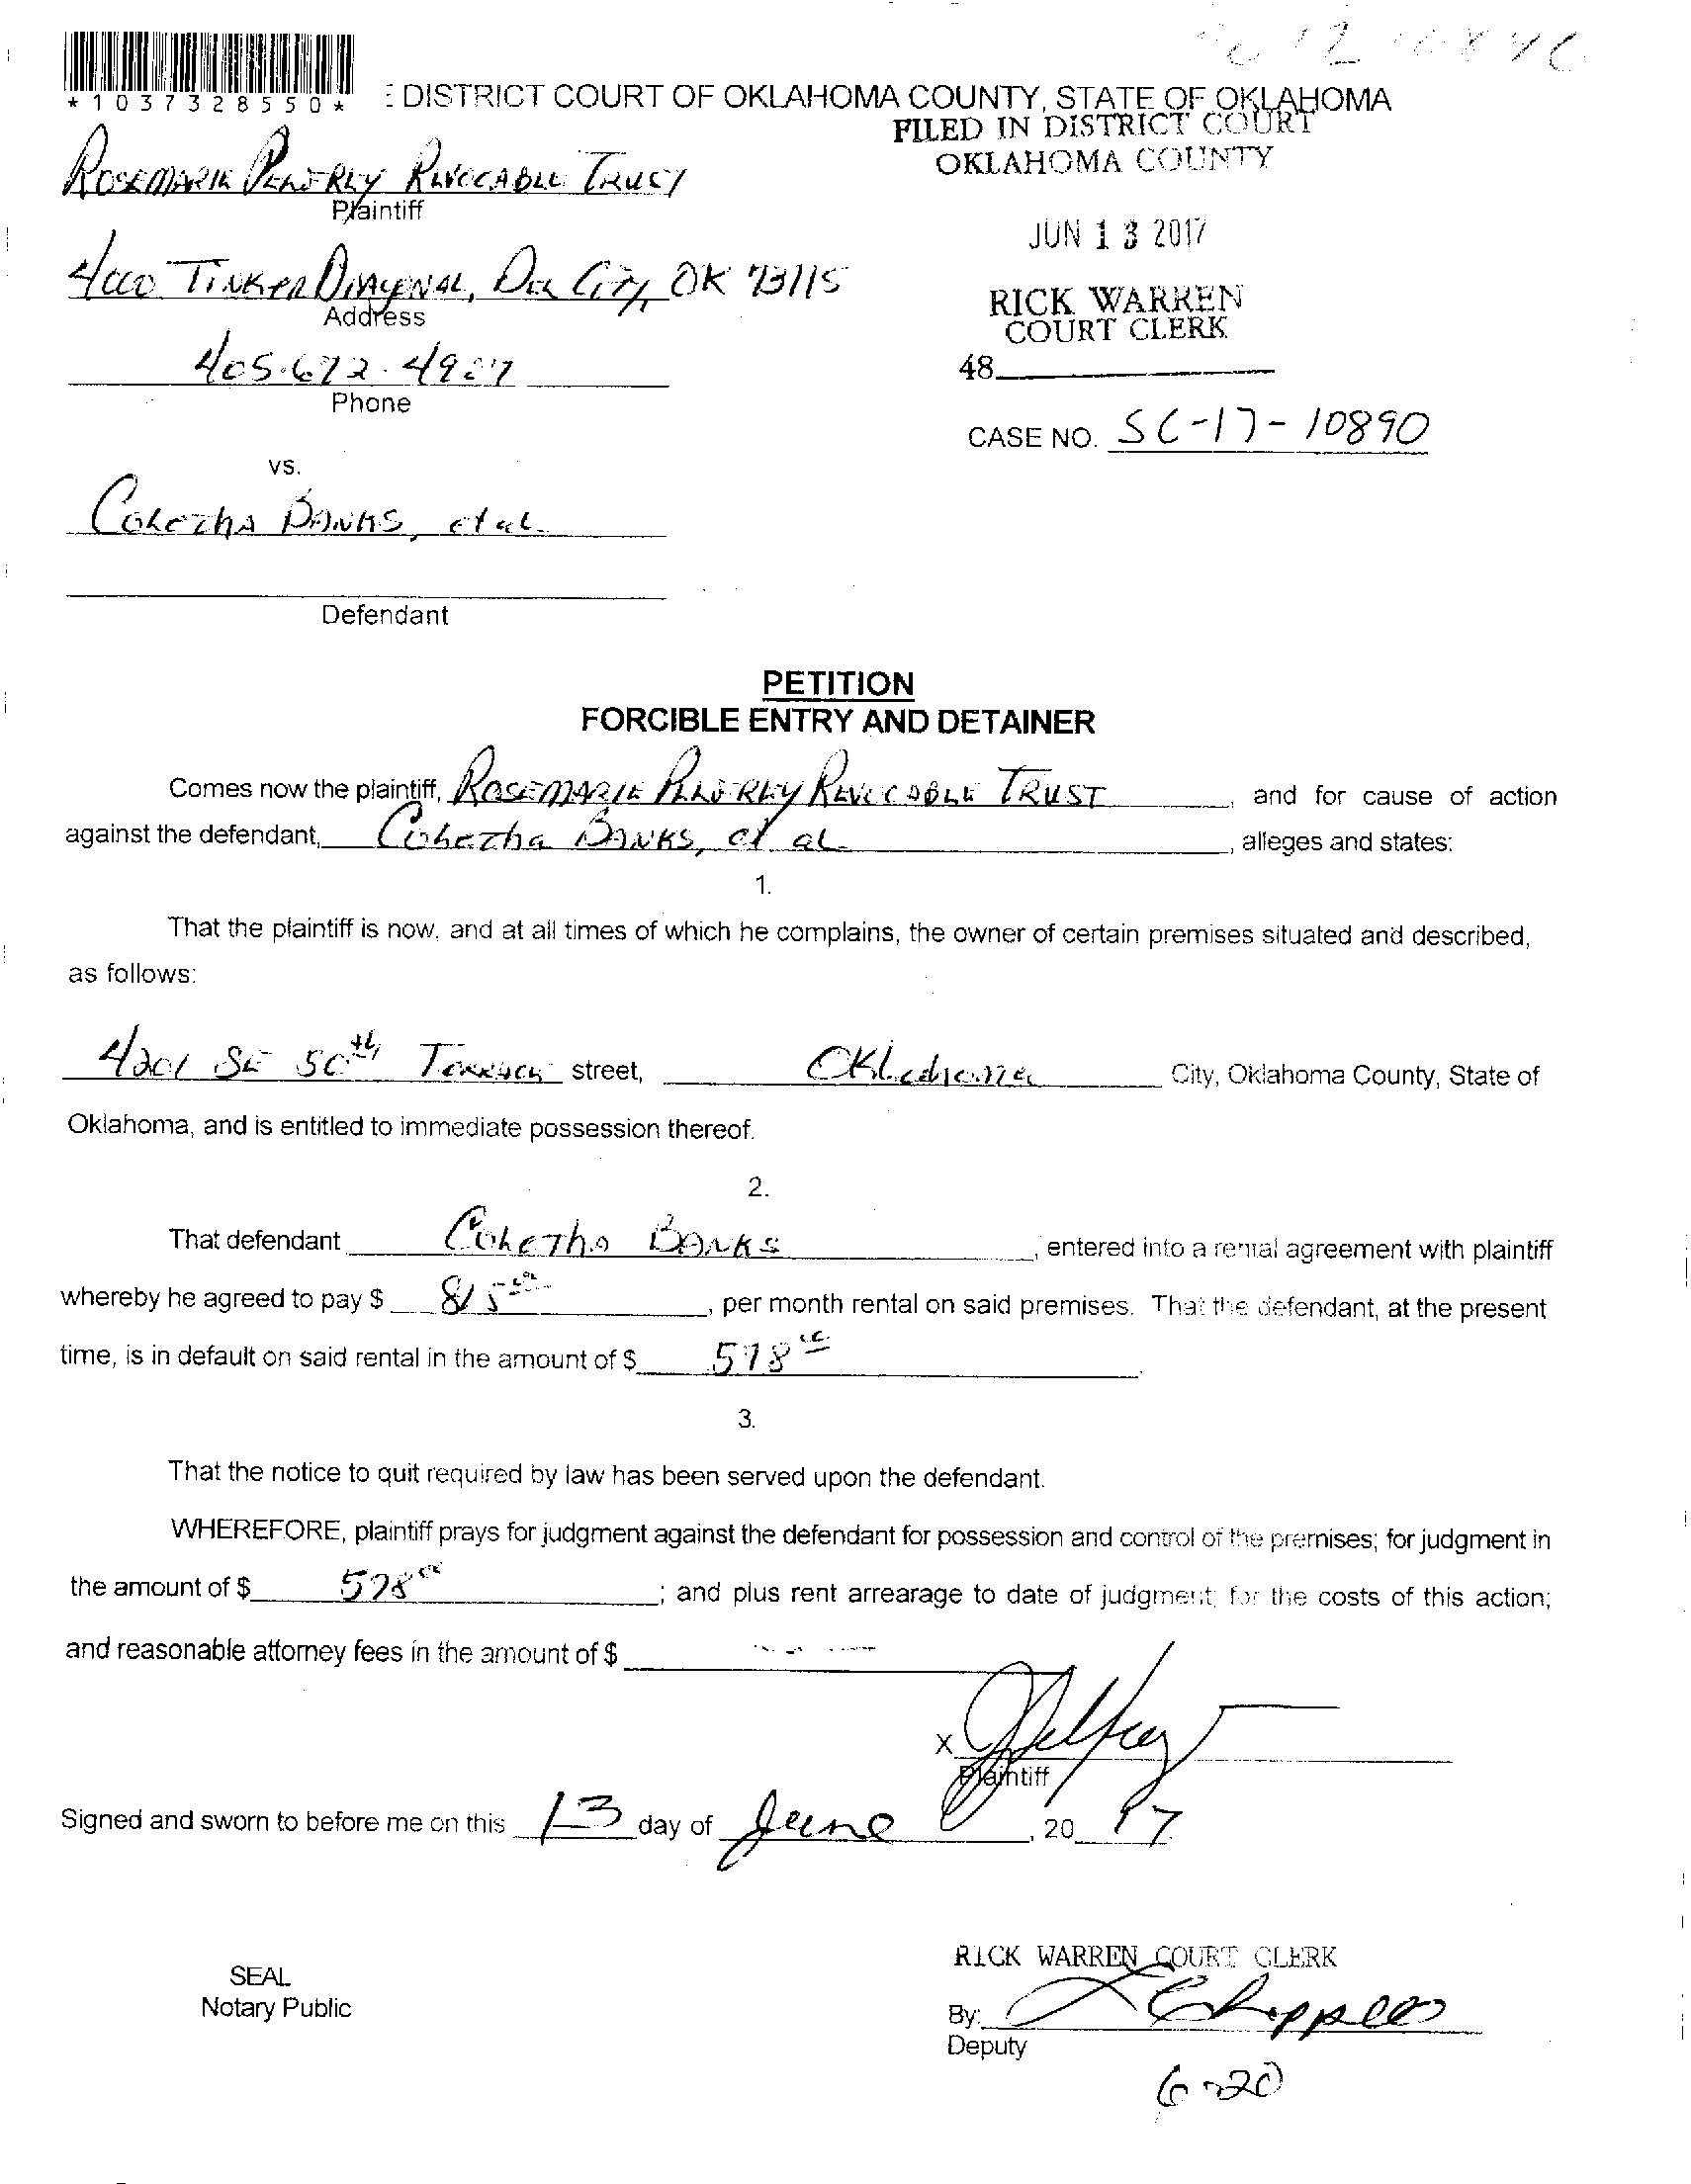 *1037328550*
E DISTRICT COURT OF OKLAHOMA COUNTY, STATE OF OKLAHOMA
FILED IN DISTRICT COURT
OKLAHOMA COUNTY
ROSEMARIE REVOCABLE TRUST
Plaintiff
JUN 13 2017
4000 TINKER DIAGONAL, DEL CITY, OK 73115
Address
RICK WARREN
COURT CLERK
405.672.4927
Phone
48
CASE NO. SC-17-10890
vs.
BANKS, et al
Defendant
PETITION
FORCIBLE ENTRY AND DETAINER
Comes now the plaintiff, ROSEMARIE REVOCABLE TRUST, and for cause of action
against the defendant, BANKS, et al, alleges and states:
1.
That the plaintiff is now, and at all times of which he complains, the owner of certain premises situated and described,
as follows:
4201 SE 50th TERRACE street, Oklahoma City, Oklahoma County, State of
Oklahoma, and is entitled to immediate possession thereof.
2.
That defendant BANKS, entered into a rental agreement with plaintiff
whereby he agreed to pay $ 815 00, per month rental on said premises. That the defendant, at the present
time, is in default on said rental in the amount of $ 578 00.
3.
That the notice to quit required by law has been served upon the defendant.
WHEREFORE, plaintiff prays for judgment against the defendant for possession and control of the premises; for judgment in
the amount of $ 578 00; and plus rent arrearage to date of judgment; for the costs of this action;
and reasonable attorney fees in the amount of $
X
Plaintiff
Signed and sworn to before me on this 13 day of June, 20 17.
RICK WARREN COURT CLERK
SEAL
Notary Public
By:
Deputy
6-20